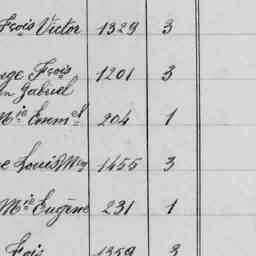 Fçois Victor 1329 3
nge Fçois 1201 3
n Gabriel
Mie Emmel 204 1
e Louis Mie 1455 3
Mie Eugène 231 1
Fçois 1359 3